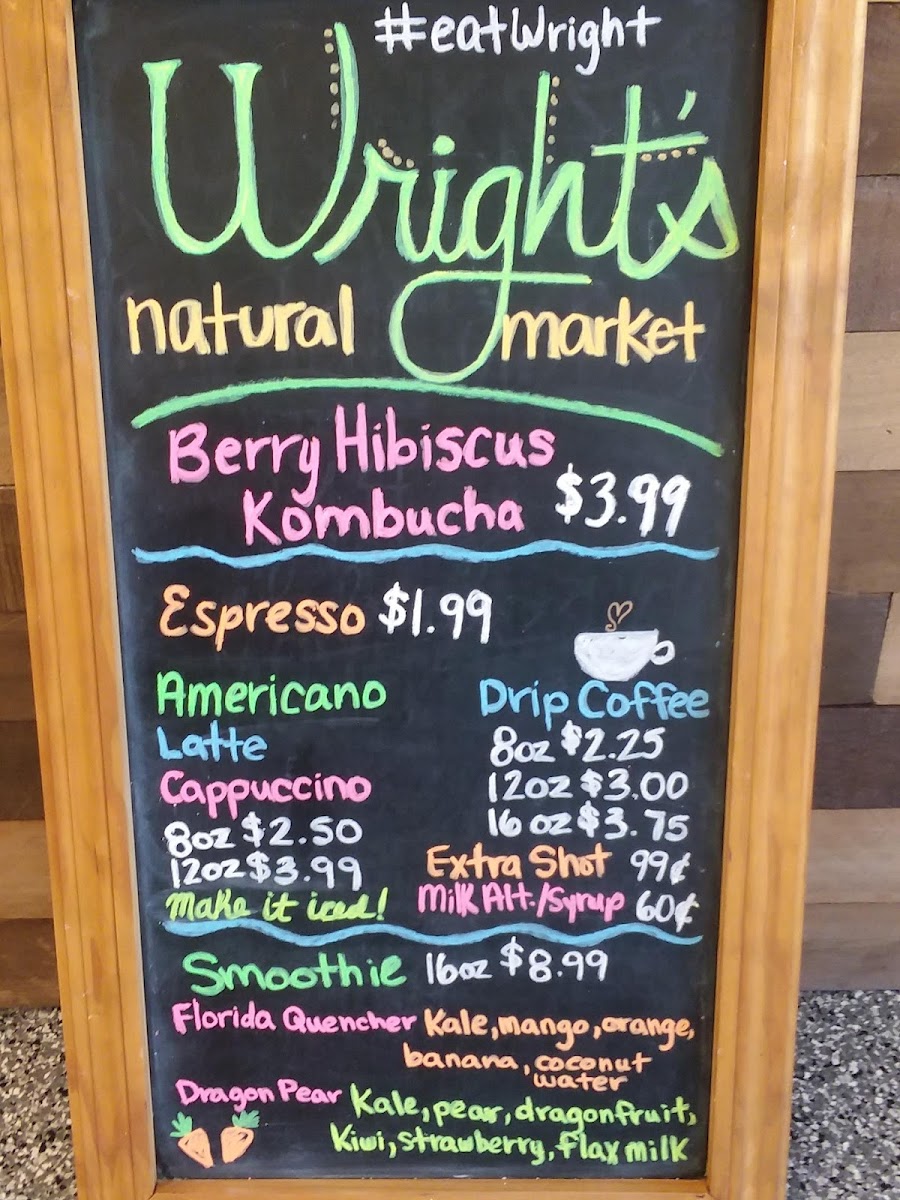 #eatWright
Wright's
natural market
Berry Hibiscus
Kombucha $3.99
Espresso $1.99
Americano
Latte
Cappuccino
8oz $2.50
12oz $3.99
make it iced!
Drip Coffee
8oz $2.25
12oz $3.00
16oz $3.75
Extra Shot 99¢
Milk Alt./Syrup 60¢
Smoothie 16oz $8.99
Florida Quencher Kale, mango, orange,
banana, coconut
water
Dragon Pear Kale, pear, dragonfruit,
Kiwi, strawberry, flax milk